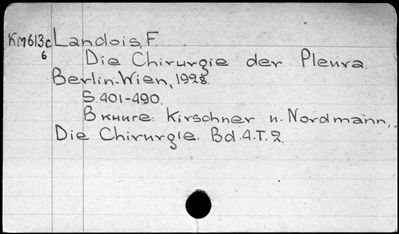 KM613c Landois, F.
6 Die Chirurgie der Pleura.
Berlin-Wien, 1928.
S. 401-490.
В книге: Kirschner u. Nordmann,
Die Chirurgie. Bd. 4. T. 2.